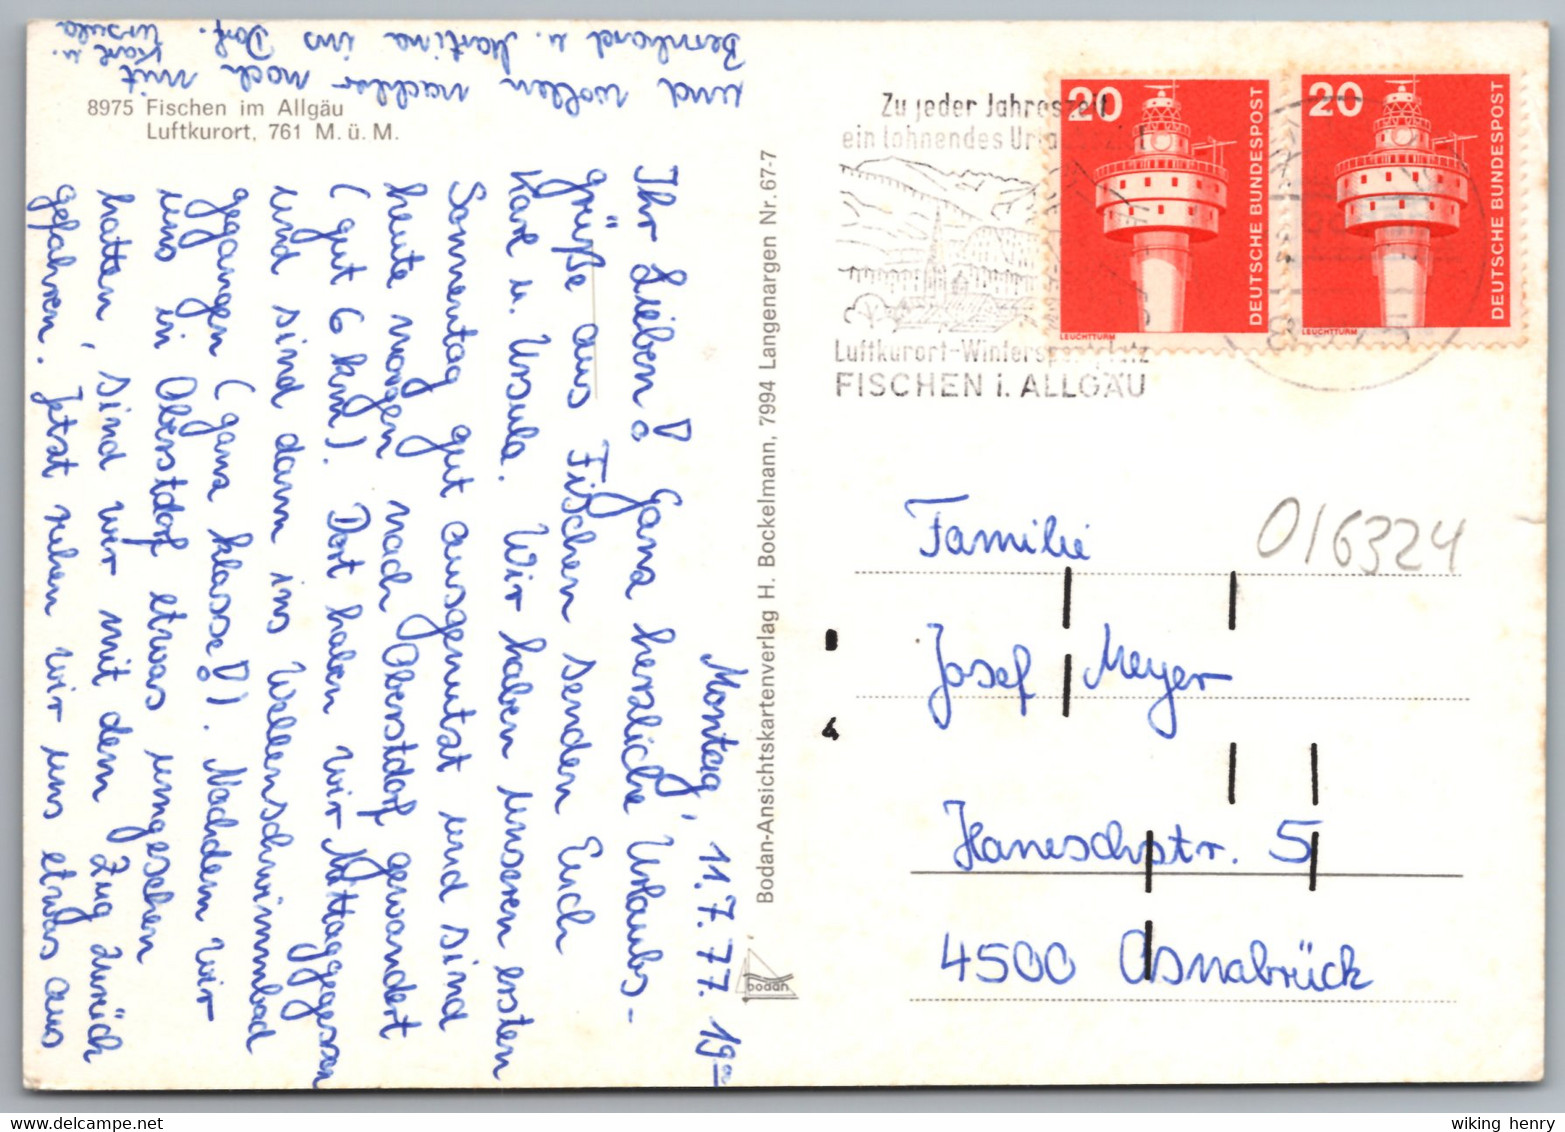 8975 Fischen im Allgäu
Luftkurort, 761 M. ü. M.
Montag, 11.7.77. 19⁰⁰
Ihr Lieben! Ganz herzliche Urlaubs-
grüße aus Fischen senden Euch
Karl u. Ursula. Wir haben unseren ersten
Sonnentag gut ausgenutzt und sind
heute morgen nach Oberstdorf gewandert
(gut 6 km). Dort haben wir Mittaggegessen
und sind dann ins Wellenschwimmbad
gegangen (ganz klasse!). Nachdem wir
uns in Oberstdorf etwas umgesehen
hatten, sind wir mit dem Zug zurück
gefahren. Jetzt ruhen wir uns etwas aus
und wollen nachher noch mit
Bernhard u. Martina ins Dorf.
Karl u.
Ursula
Bodan-Ansichtskartenverlag H. Bockelmann, 7994 Langenargen Nr. 67-7
bodan
Zu jeder Jahreszeit
ein lohnendes
Luftkurort-Wintersportplatz
FISCHEN i. ALLGÄU
20
DEUTSCHE BUNDESPOST
LEUCHTTURM
20
DEUTSCHE BUNDESPOST
LEUCHTTURM
016324
Familie
Josef Meyer
Haneschstr. 5
4500 Osnabrück
wiking henry